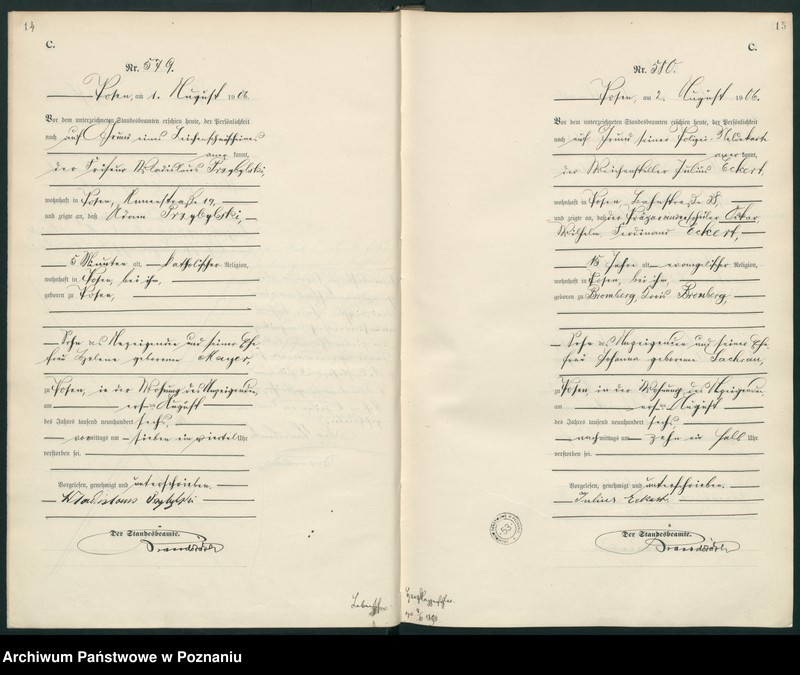 14
C.
Nr. 579.
Posen, am 1. August 1906.
Vor dem unterzeichneten Standesbeamten erschien heute, der Persönlichkeit
nach auf Grund eines Leichenschauscheines
kannt,
der Friseur Wladislaus Przybylski,
wohnhaft in Posen, 19,
und zeigte an, daß Adam Przybylski,
5 Minuten alt, katholischer Religion,
wohnhaft in Posen, bei ihm,
geboren zu Posen,
Sohn des Anzeigenden und seiner Ehe-
frau Helene geborenen Mayer,
zu Posen, in der Wohnung des Anzeigenden,
am ersten August
des Jahres tausend neunhundert sechs,
vormittags um sieben ein viertel Uhr
verstorben sei.
Vorgelesen, genehmigt und unterschrieben.
Wladislaus Przybylski
Der Standesbeamte.
15
C.
Nr. 580.
Posen, am 2. August 1906.
Vor dem unterzeichneten Standesbeamten erschien heute, der Persönlichkeit
nach auf Grund seiner Polizei-Meldekarte
kannt,
der Weichensteller Julius Eckert,
wohnhaft in Posen, Bahnstraße
und zeigte an, daß der Präparandenschüler Oskar,
Wilhelm Ferdinand Eckert,
15 Jahre alt, evangelischer Religion,
wohnhaft in Posen, bei ihm,
geboren zu Bromberg, Kreis Bromberg,
Sohn des Anzeigenden und seiner Ehe-
frau Johanna geborenen
zu Posen, in der Wohnung des Anzeigenden
am ersten August
des Jahres tausend neunhundert sechs,
nachmittags um zehn ein halb Uhr
verstorben sei.
Vorgelesen, genehmigt und unterschrieben.
Julius Eckert
Der Standesbeamte.
53
Archiwum Państwowe w Poznaniu